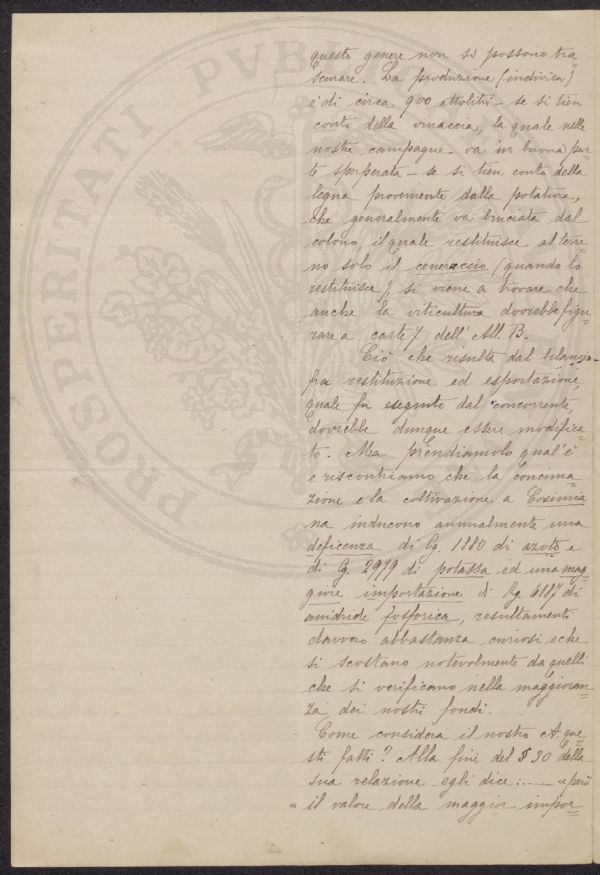 questo genere non si possono tra=
scurare. La produzione (indivisa)
è di circa 900 ettolitri – se si tien
conto della vinaccia, la quale nelle
nostre campagne va in buona par=
te sperperata – se si tien conto della
legna proveniente dalla potatura,
che generalmente va bruciata dal
colono, il quale restituisce al terre=
no solo il ceneraccio (quando lo
restituisce), si viene a trovare che
anche la viticultura dovrebbe figu=
rare a carte 7 dell' All. B.
Ciò che risulta dal bilancio
fra restituzione ed esportazione,
quale fu eseguito dal concorrente,
dovrebbe dunque essere modifica=
to. Ma prendiamolo qual'è
e riscontriamo che la concima=
zione e la coltivazione a Cosimia
na inducono annualmente una
deficenza di Cg. 1880 di azoto e
di Cg. 2979 di potassa ed una mag=
giore importazione di Kg. 6187 di
anidride fosforica, resultamenti
davvero abbastanza curiosi e che
si scostano notevolmente da quelli
che si verificano nella maggioran=
za dei nostri fondi.
Come considera il nostro A. que=
sti fatti? Alla fine del § 30 della
sua relazione egli dice: «però
« il valore della maggior impor=
PROSPERITATI PVBLI